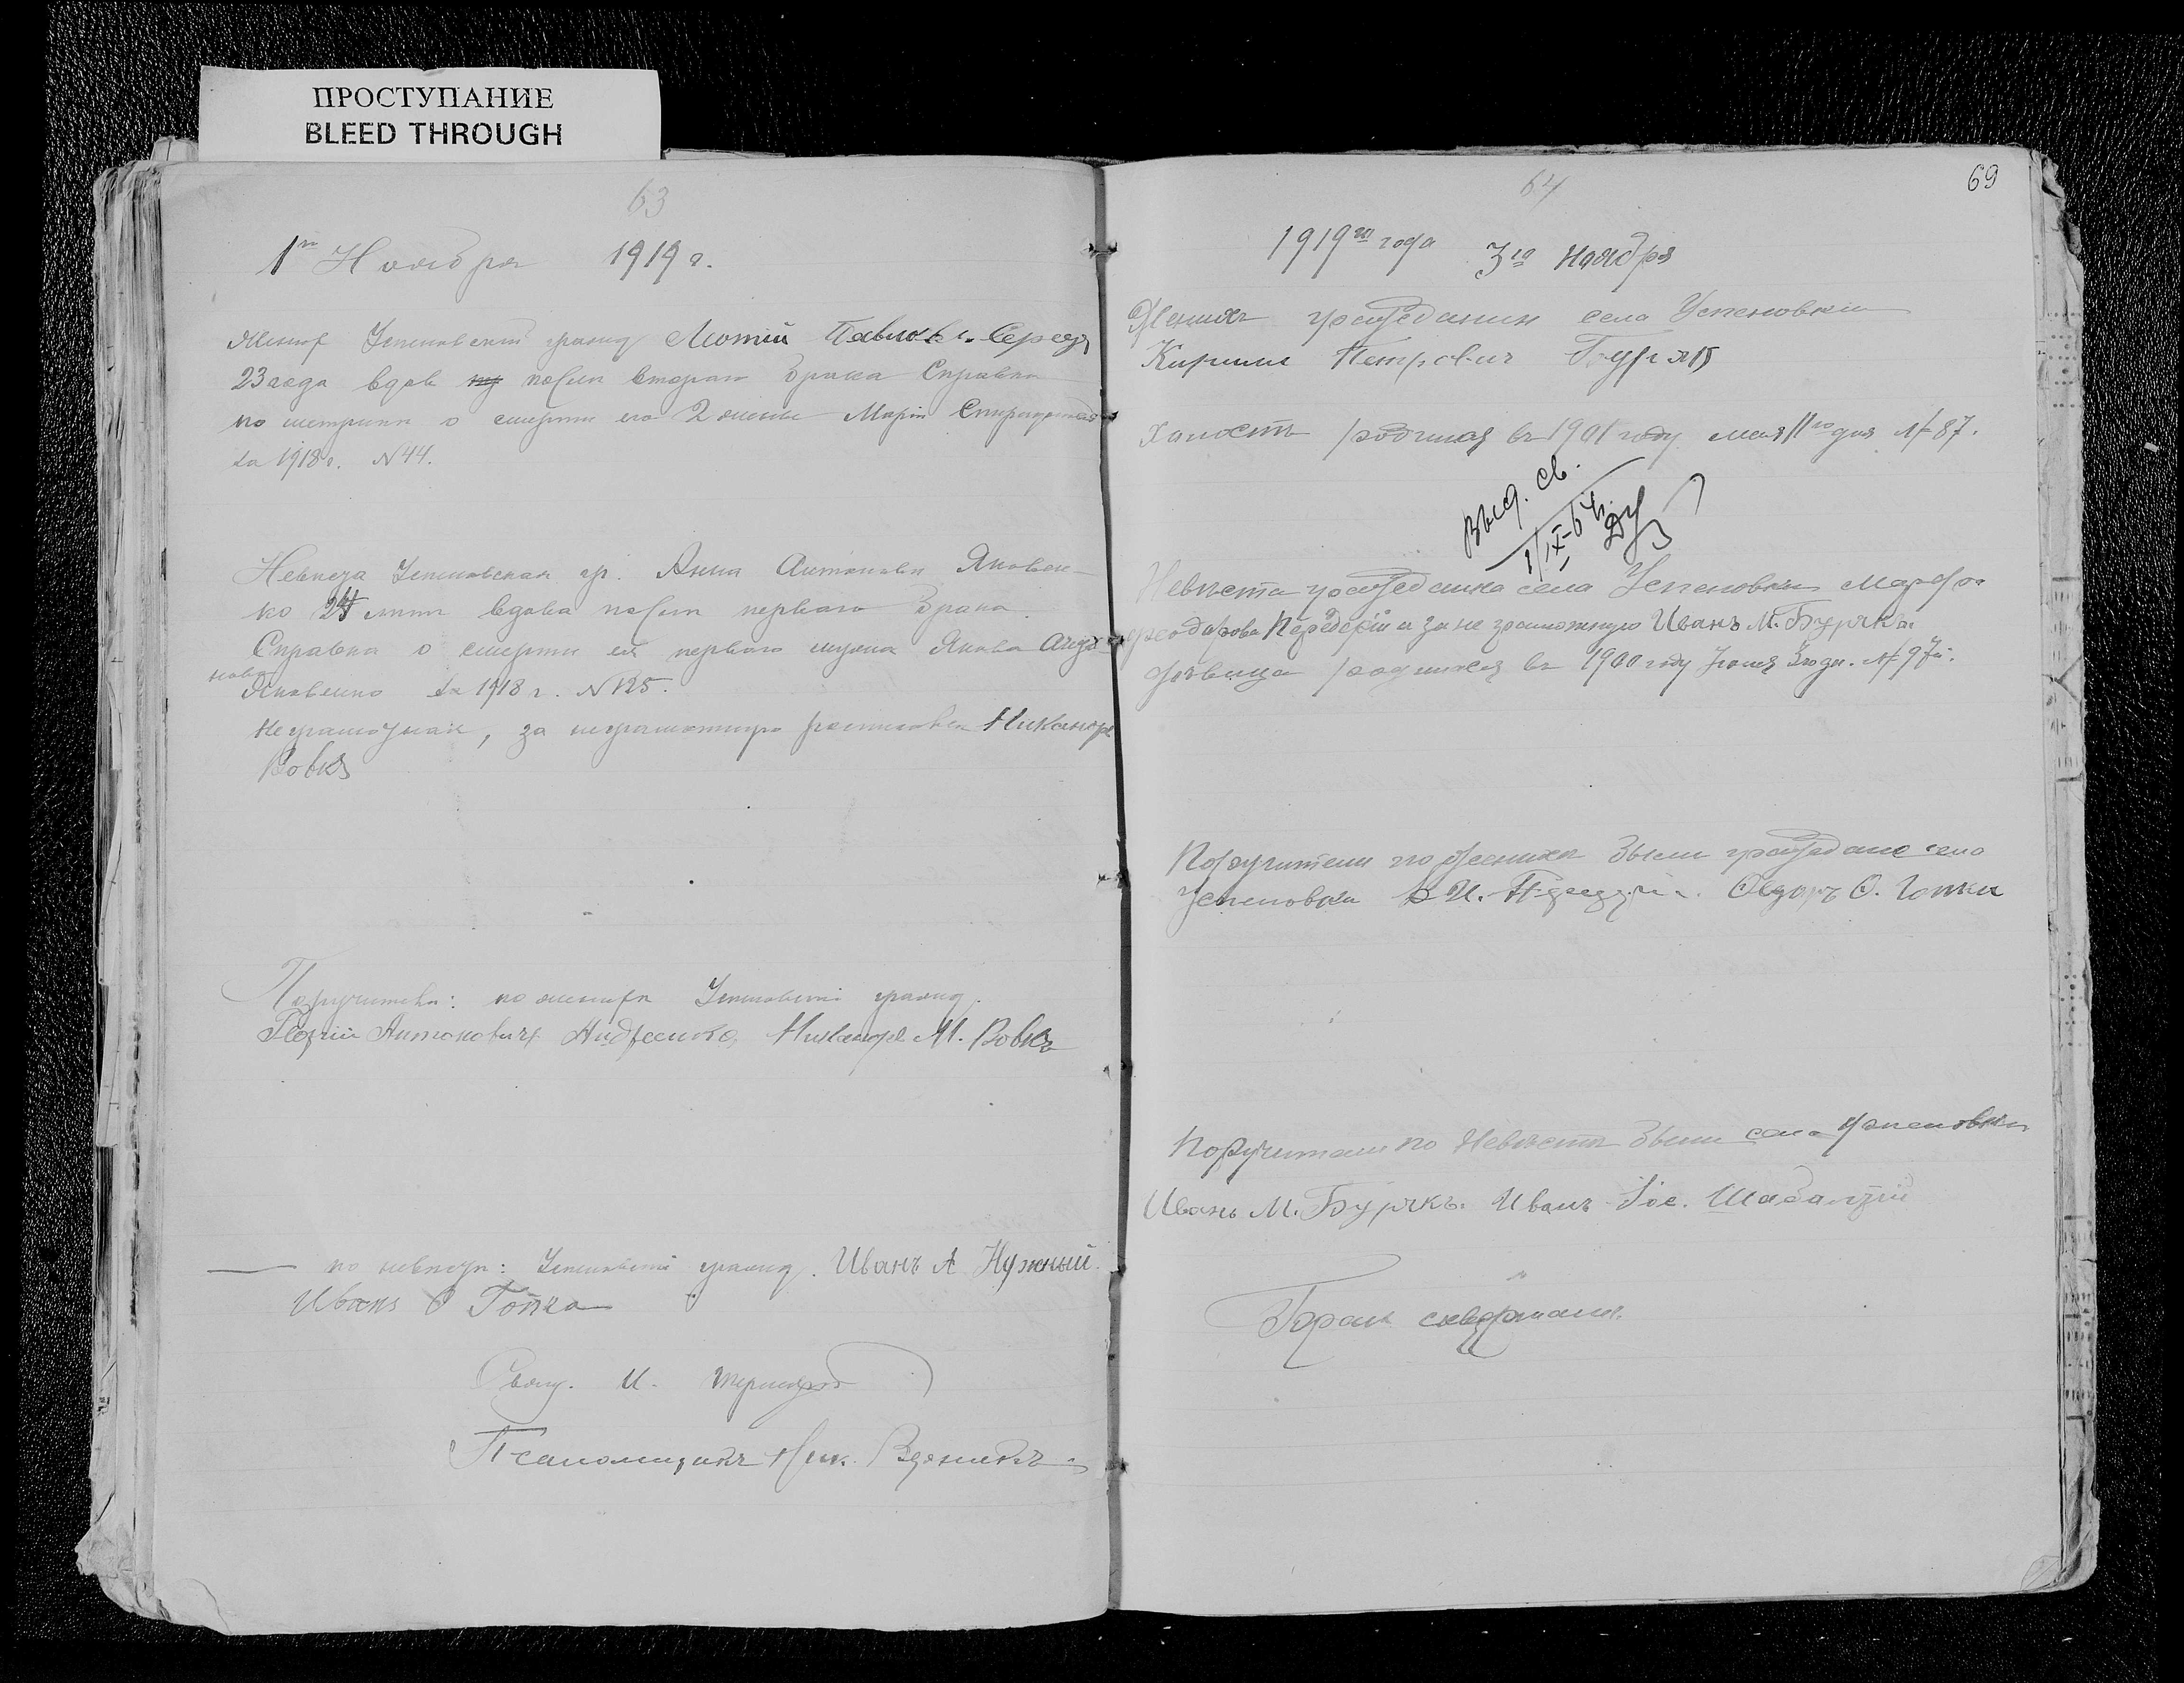 ПРОСТУПАНИЕ
BLEED THROUGH
63
1го Ноября 1919 г.
Жених Успеновский гражд Мотий Павлов. Серед
23 года вдов после второго брака Справка
по метрики о смерти его 2 жены Марiи
за 1918 г. N 44.
Невеста Успеновская гр. Анна Антонова Яковен-
ко 24 лет вдова после первого брака
Справка о смерти ея первого мужа Якова Андр
нова
Яковенко за 1918 г. N 125.
Неграмотная, за неграмотную росписався Никаноръ
Вовкъ
Поручители: по женихе Успеновскiй гражд.
Георгiй Антоновичъ Андреенко, Никаноръ М. Вовкъ
по невесте: Успеновскiй гражд. Иванъ А Нужный.
Иванъ О Гопка
Свящ. И.
Псаломщикъ Ник.
64
69
1919го года 3го ноября
Жених гражданин села Успеновки
Кирилл Петрович Бурляй
Холост родился в 1901 году мая 11го дня № 87.
Выд. св.
1/IX-64г.
Невеста гражданка села Успеновки Марфа
Феодорова Передерiй а за не грамотную Иванъ М. Бурчкъ.
девица родилася в 1900 году Iюля 3го дн. № 97й.
Поручители по жениха были граждане села
Успеновки О. Гопка
Поручители по Невесте были села Успеновки
Иванъ М. Бурчкъ. Иванъ Iос. Шабалтiй
Брак совершали.